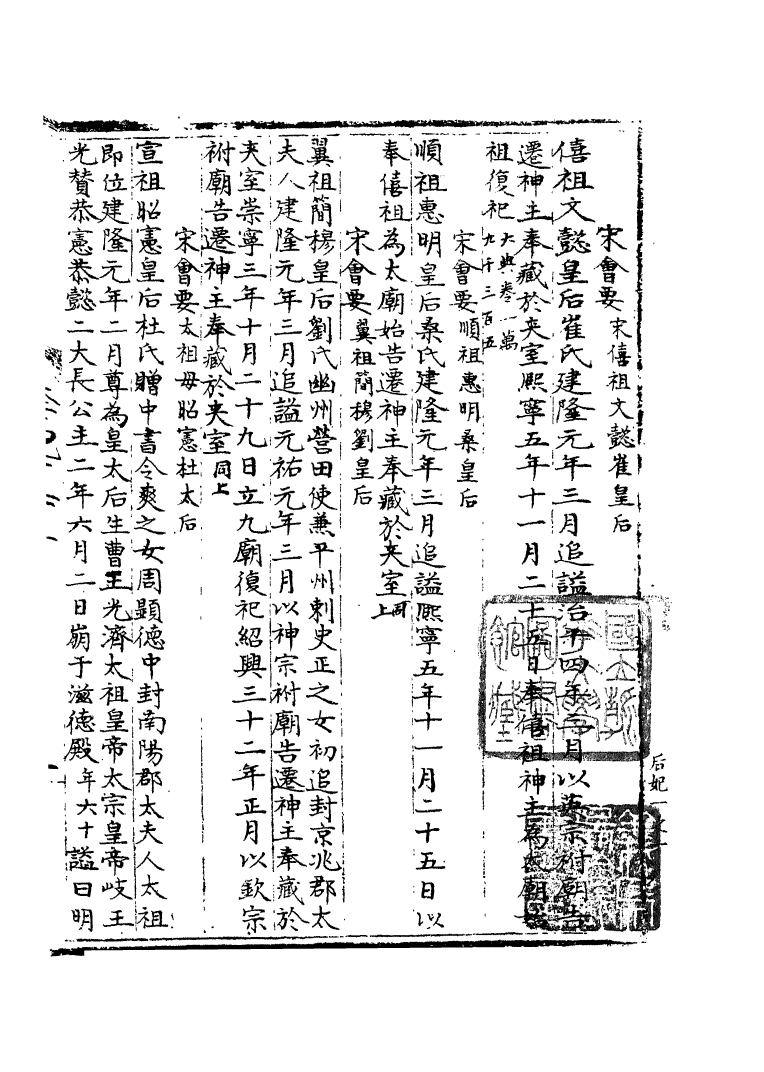 宋會要 宋僖祖文懿崔皇后
僖祖文懿皇后崔氏建隆元年三月追謚治平四年三月以英宗祔廟告
遷神主奉藏於夾室熙寧五年十一月二十五日奉僖祖神主為太廟始
祖復祀 大典卷一萬九千三百五
宋會要 順祖惠明桑皇后
順祖惠明皇后桑氏建隆元年三月追謚熙寧五年十一月二十五日以
奉僖祖為太廟始告遷神主奉藏於夾室同上
宋會要 翼祖簡穆劉皇后
翼祖簡穆皇后劉氏幽州營田使兼平州刺史正之女初追封京兆郡太
夫人建隆元年三月追謚元祐元年三月以神宗祔廟告遷神主奉藏於
夾室崇寧三年十月二十九日立九廟復祀紹興三十二年正月以欽宗
祔廟告遷神主奉藏於夾室同上
宋會要 太祖母昭憲杜太后
宣祖昭憲皇后杜氏贈中書令爽之女周顯德中封南陽郡太夫人太祖
即位建隆元年二月尊為皇太后生曹王光濟太祖皇帝太宗皇帝岐王
光贊恭憲恭懿二大長公主二年六月二日崩于滋德殿年六十謚曰明
后妃一之一